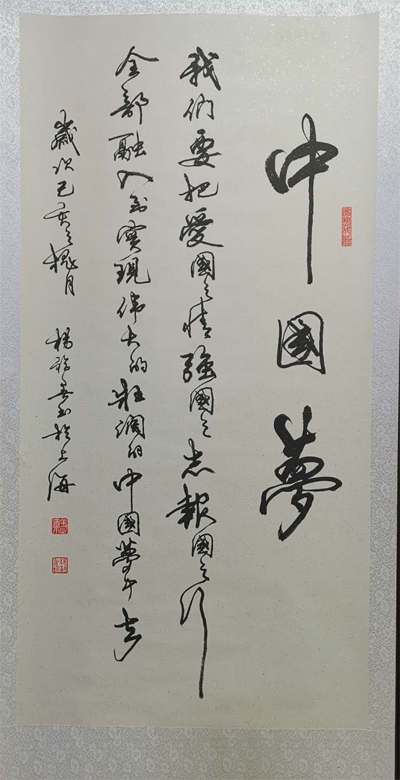 中國夢
我们要把愛國之情強國之志報國之行
全部融入到實現伟大的壯阔的中國夢中去
歲次己亥之槐月 楊書於上海